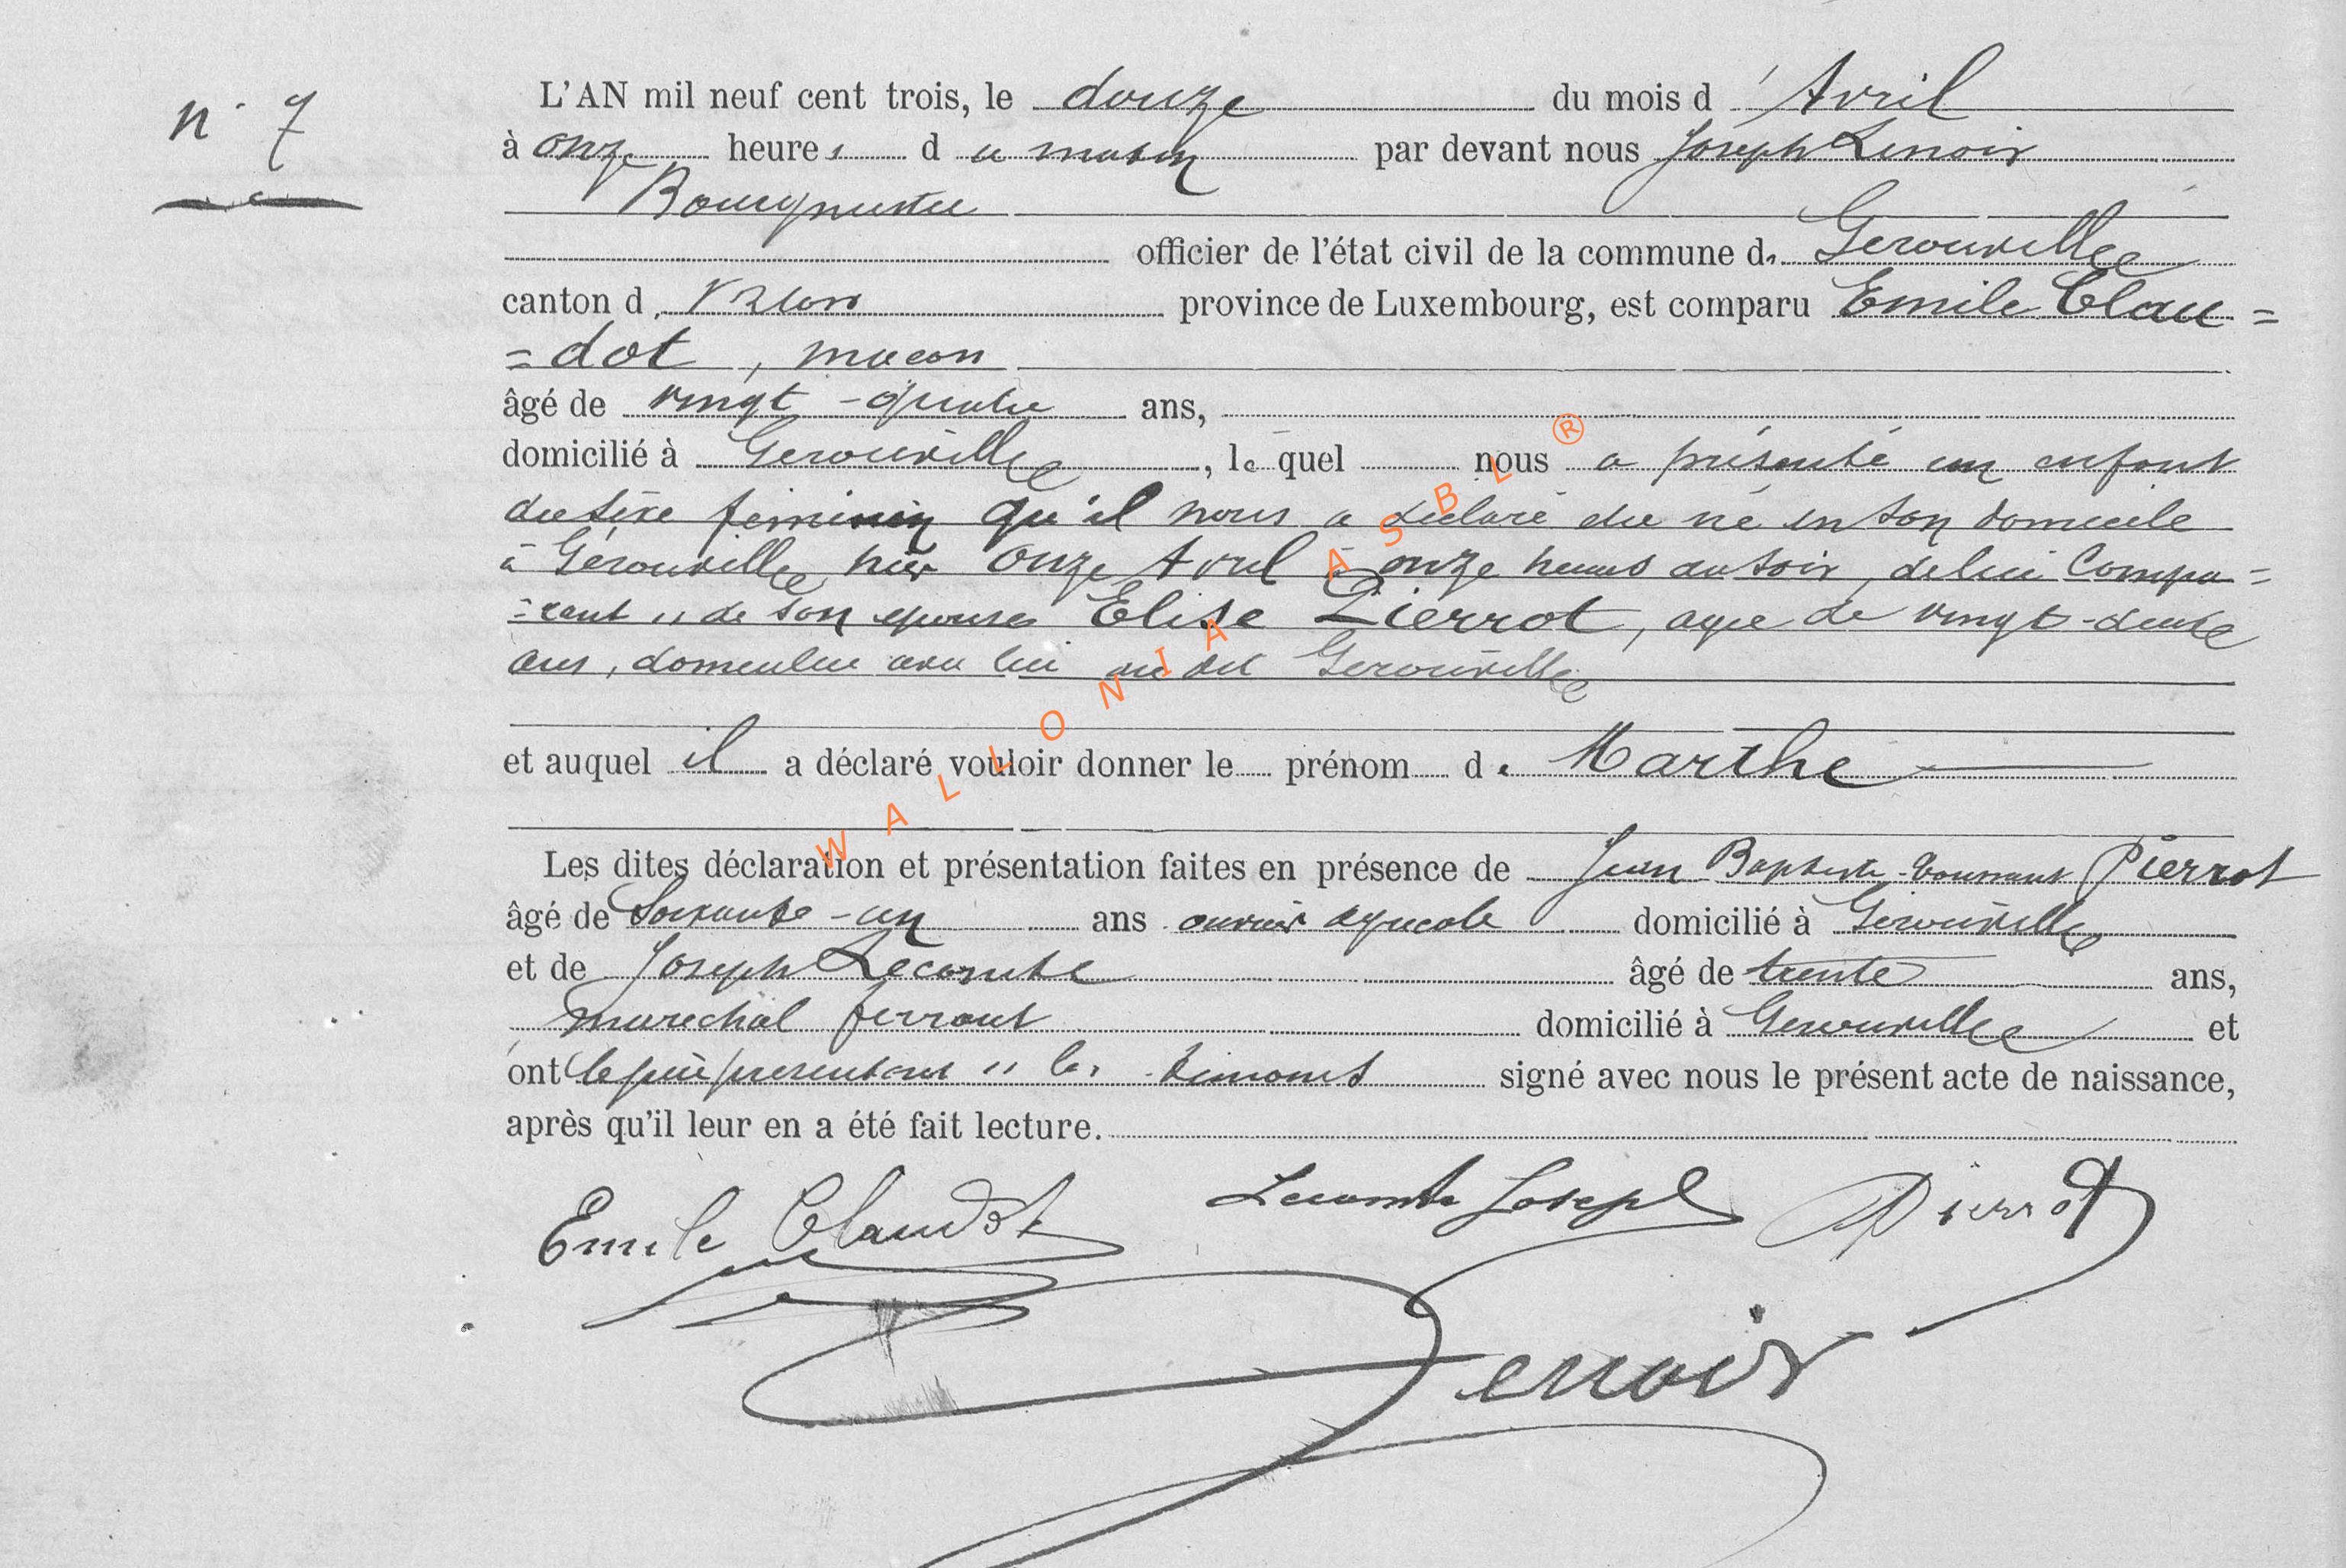 n° 7
L'AN mil neuf cent trois, le douze du mois d'Avril
à onze heures du matin par devant nous Joseph Lenoir
Bourgmestre
officier de l'état civil de la commune de Gerouville
canton de Virton province de Luxembourg, est comparu Emile Clau=
=dot, macon
âgé de vingt-quatre ans,
domicilié à Gerouville, le quel nous a présenté un enfant
du sexe feminin qu'il nous a déclaré être né en son domicile
à Gérouville hier onze Avril à onze heures du soir, de lui Compa=
=rant et de son epouse Elise Pierrot, agée de vingt-deux
ans, domiciliée avec lui au dit Gerouville
et auquel il a déclaré vouloir donner le prénom de Marthe
Les dites déclaration et présentation faites en présence de Jean Baptiste Toussaint Pierrot
âgé de Soixante-un ans ouvrier agricole domicilié à Gérouville
et de Joseph Lecomte âgé de trente ans,
marechal ferrant domicilié à Gerouville et
ont le père présentant et les témoins signé avec nous le présent acte de naissance,
après qu'il leur en a été fait lecture.
Emile Claudot Lecomte Joseph Pierrot
Lenoir
WALLONIA ASBL ®